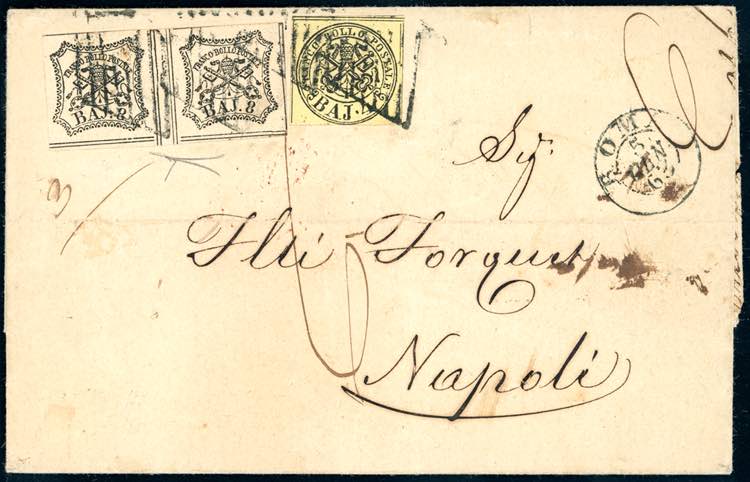 FRANCO BOLLO POSTALE
BAJ. 8
FRANCO BOLLO POSTALE
BAJ. 8
FRANCO BOLLO POSTALE
BAJ.
ROMA
5
GEN
Sig
Flli Forquet
Napoli